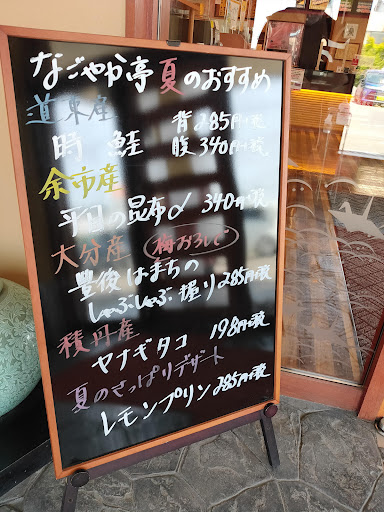 なごやか亭 夏のおすすめ
道東産
時鮭 背285円+税
腹340円+税
余市産
平目の昆布〆 340円+税
大分産 梅おろしで
豊後はまちの
しゃぶしゃぶ握り285円+税
積丹産
ヤナギタコ 198円+税
夏のさっぱりデザート
レモンプリン285円+税